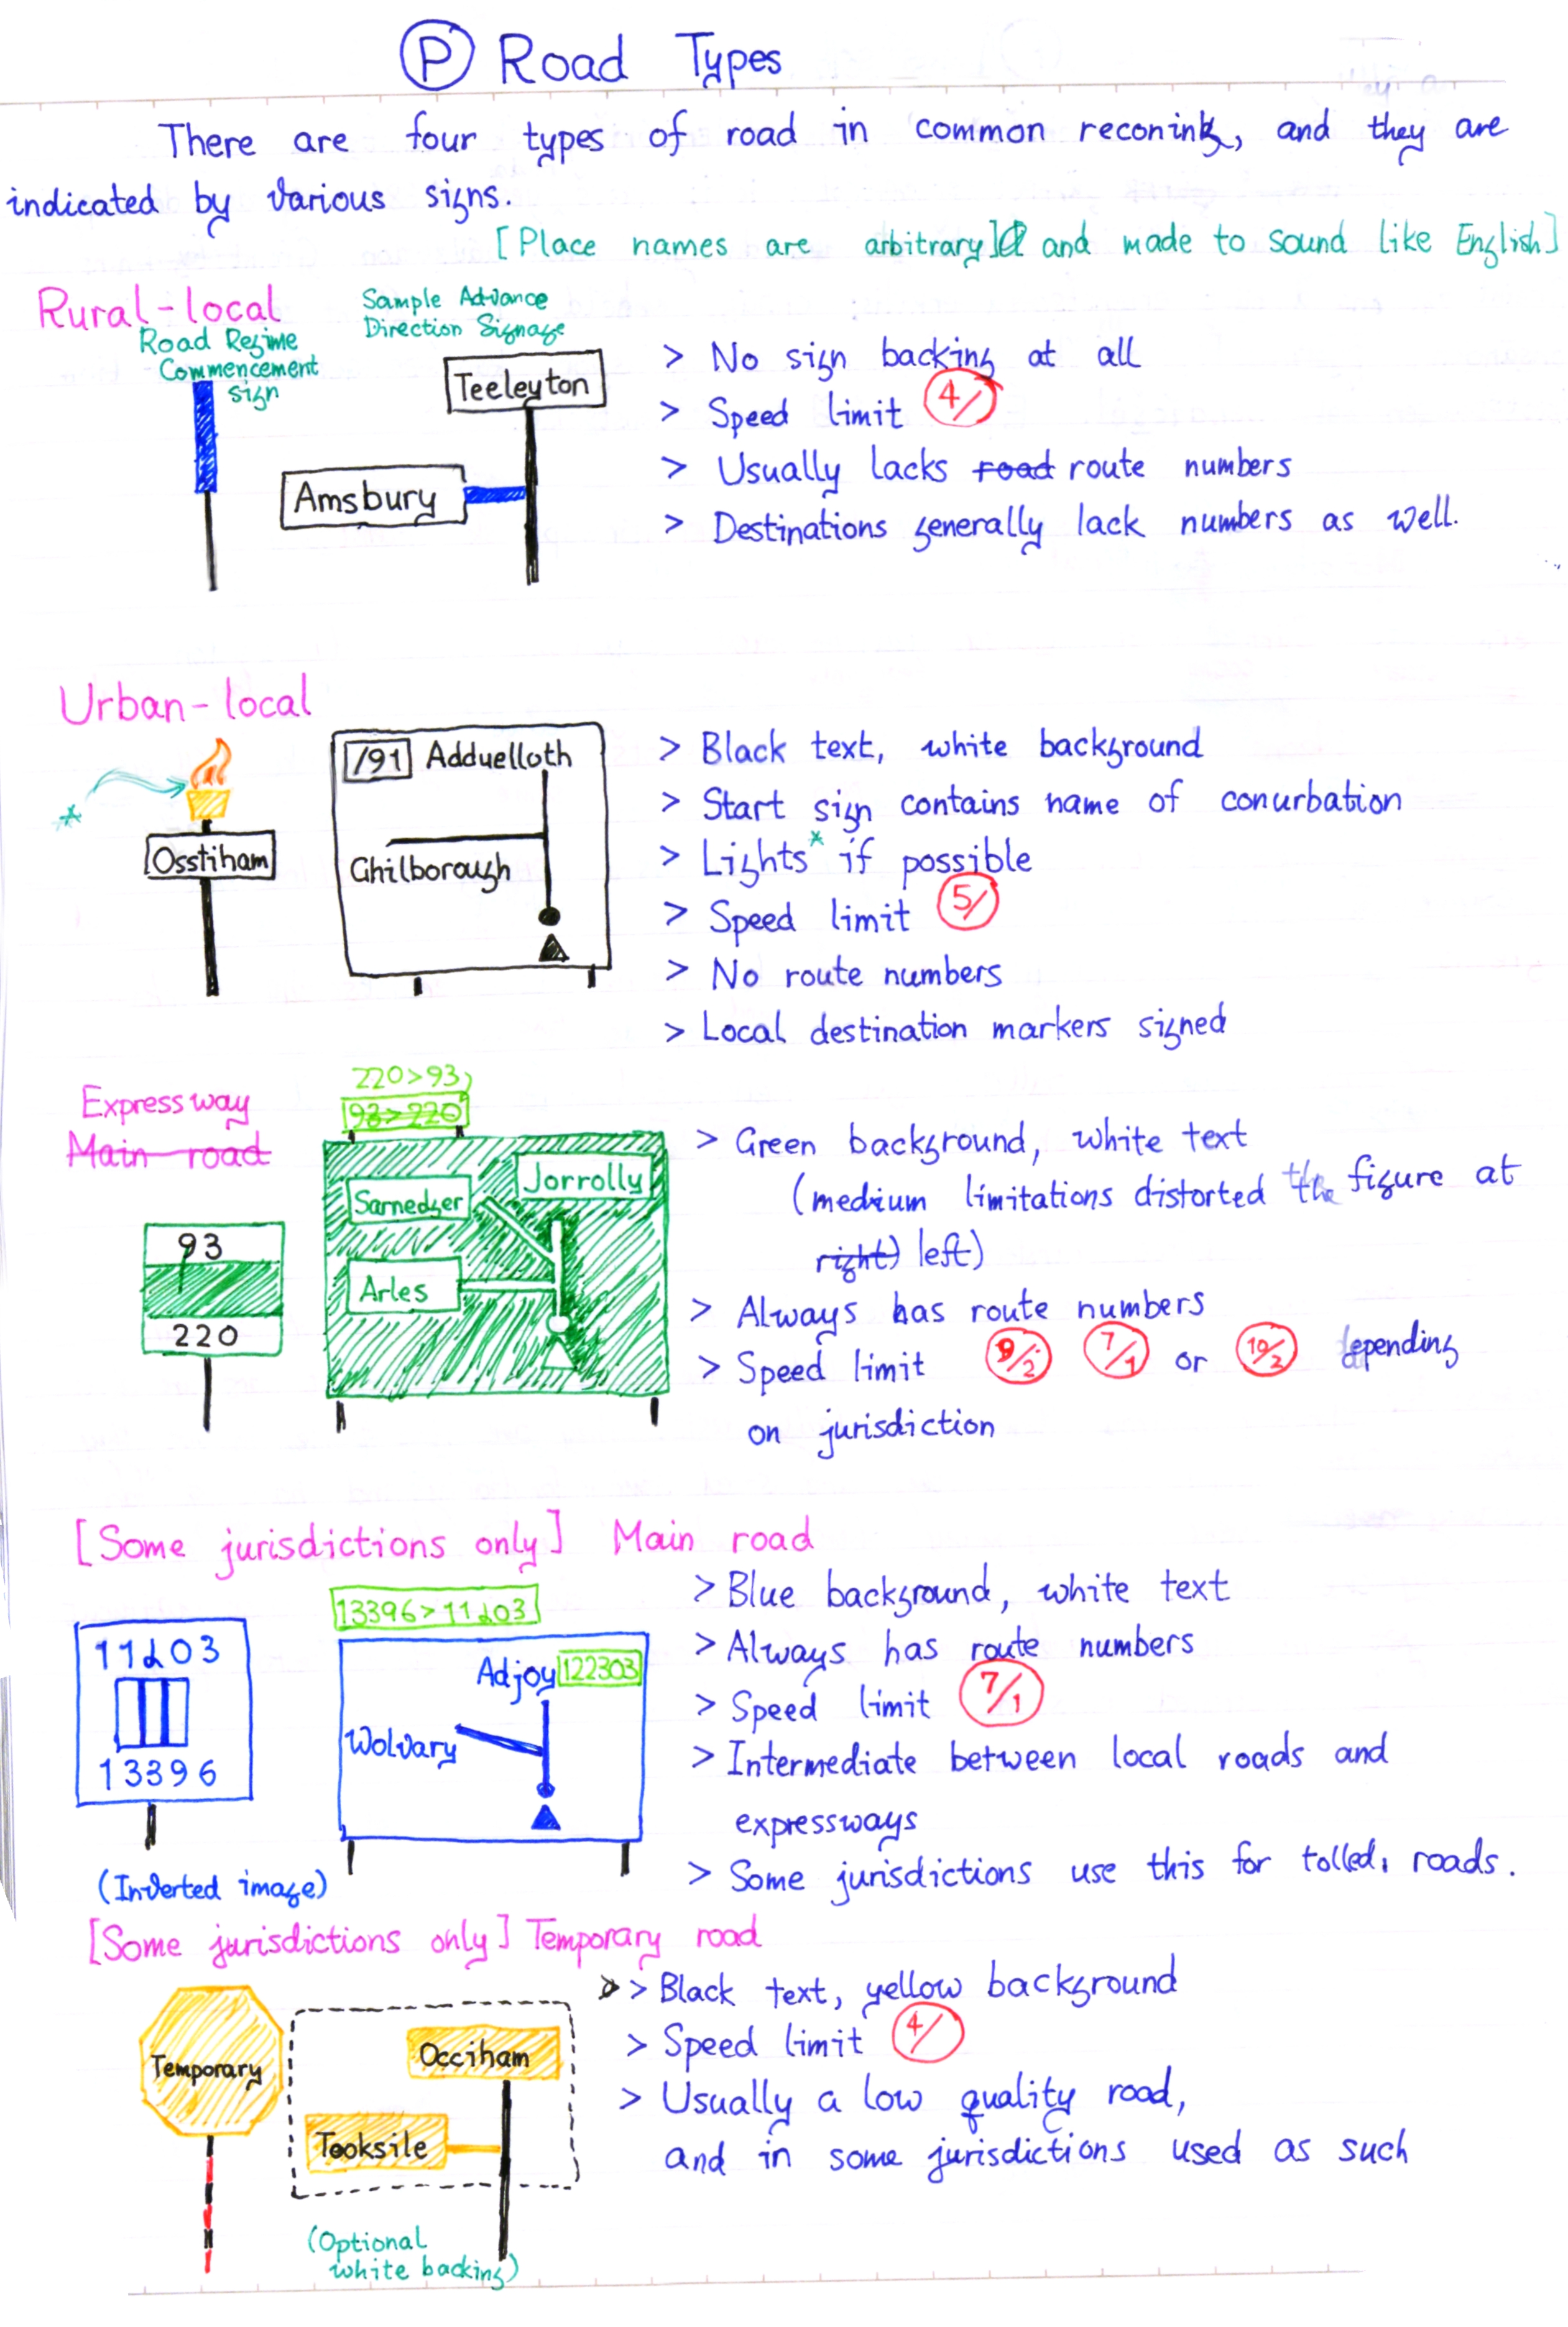 P Road Types
There are four types of road in common reconing, and they are
indicated by various signs.
[Place names are arbitrary] and made to sound like English]
Rural-local
Road Regime
Commencement
sign
Sample Advance
Direction Signage
Teeleyton
Amsbury
> No sign backing at all
> Speed limit 4/
> Usually lacks road route numbers
> Destinations generally lack numbers as well.
Urban-local
*
Osstiham
/91 Adduelloth
Ghilborough
> Black text, white background
> Start sign contains name of conurbation
> Lights* if possible
> Speed limit 5/
> No route numbers
> Local destination markers signed
Expressway
Main road
93
220
220>93
93>220
Jorrolly
Sarnedger
Arles
> Green background, white text
(medium limitations distorted the figure at
right) left)
> Always has route numbers
> Speed limit 9/2 7/1 or 10/2 depending
on jurisdiction
[Some jurisdictions only] Main road
13396
(Inverted image)
Adjoy 122303
Wolvary
> Blue background, white text
> Always has route numbers
> Speed limit 7/1
> Intermediate between local roads and
expressways
> Some jurisdictions use this for tolled, roads.
[Some jurisdictions only] Temporary road
Temporary
Occiham
Tooksile
(Optional
white backing)
> Black text, yellow background
> Speed limit 4/
> Usually a low quality road,
and in some jurisdictions used as such